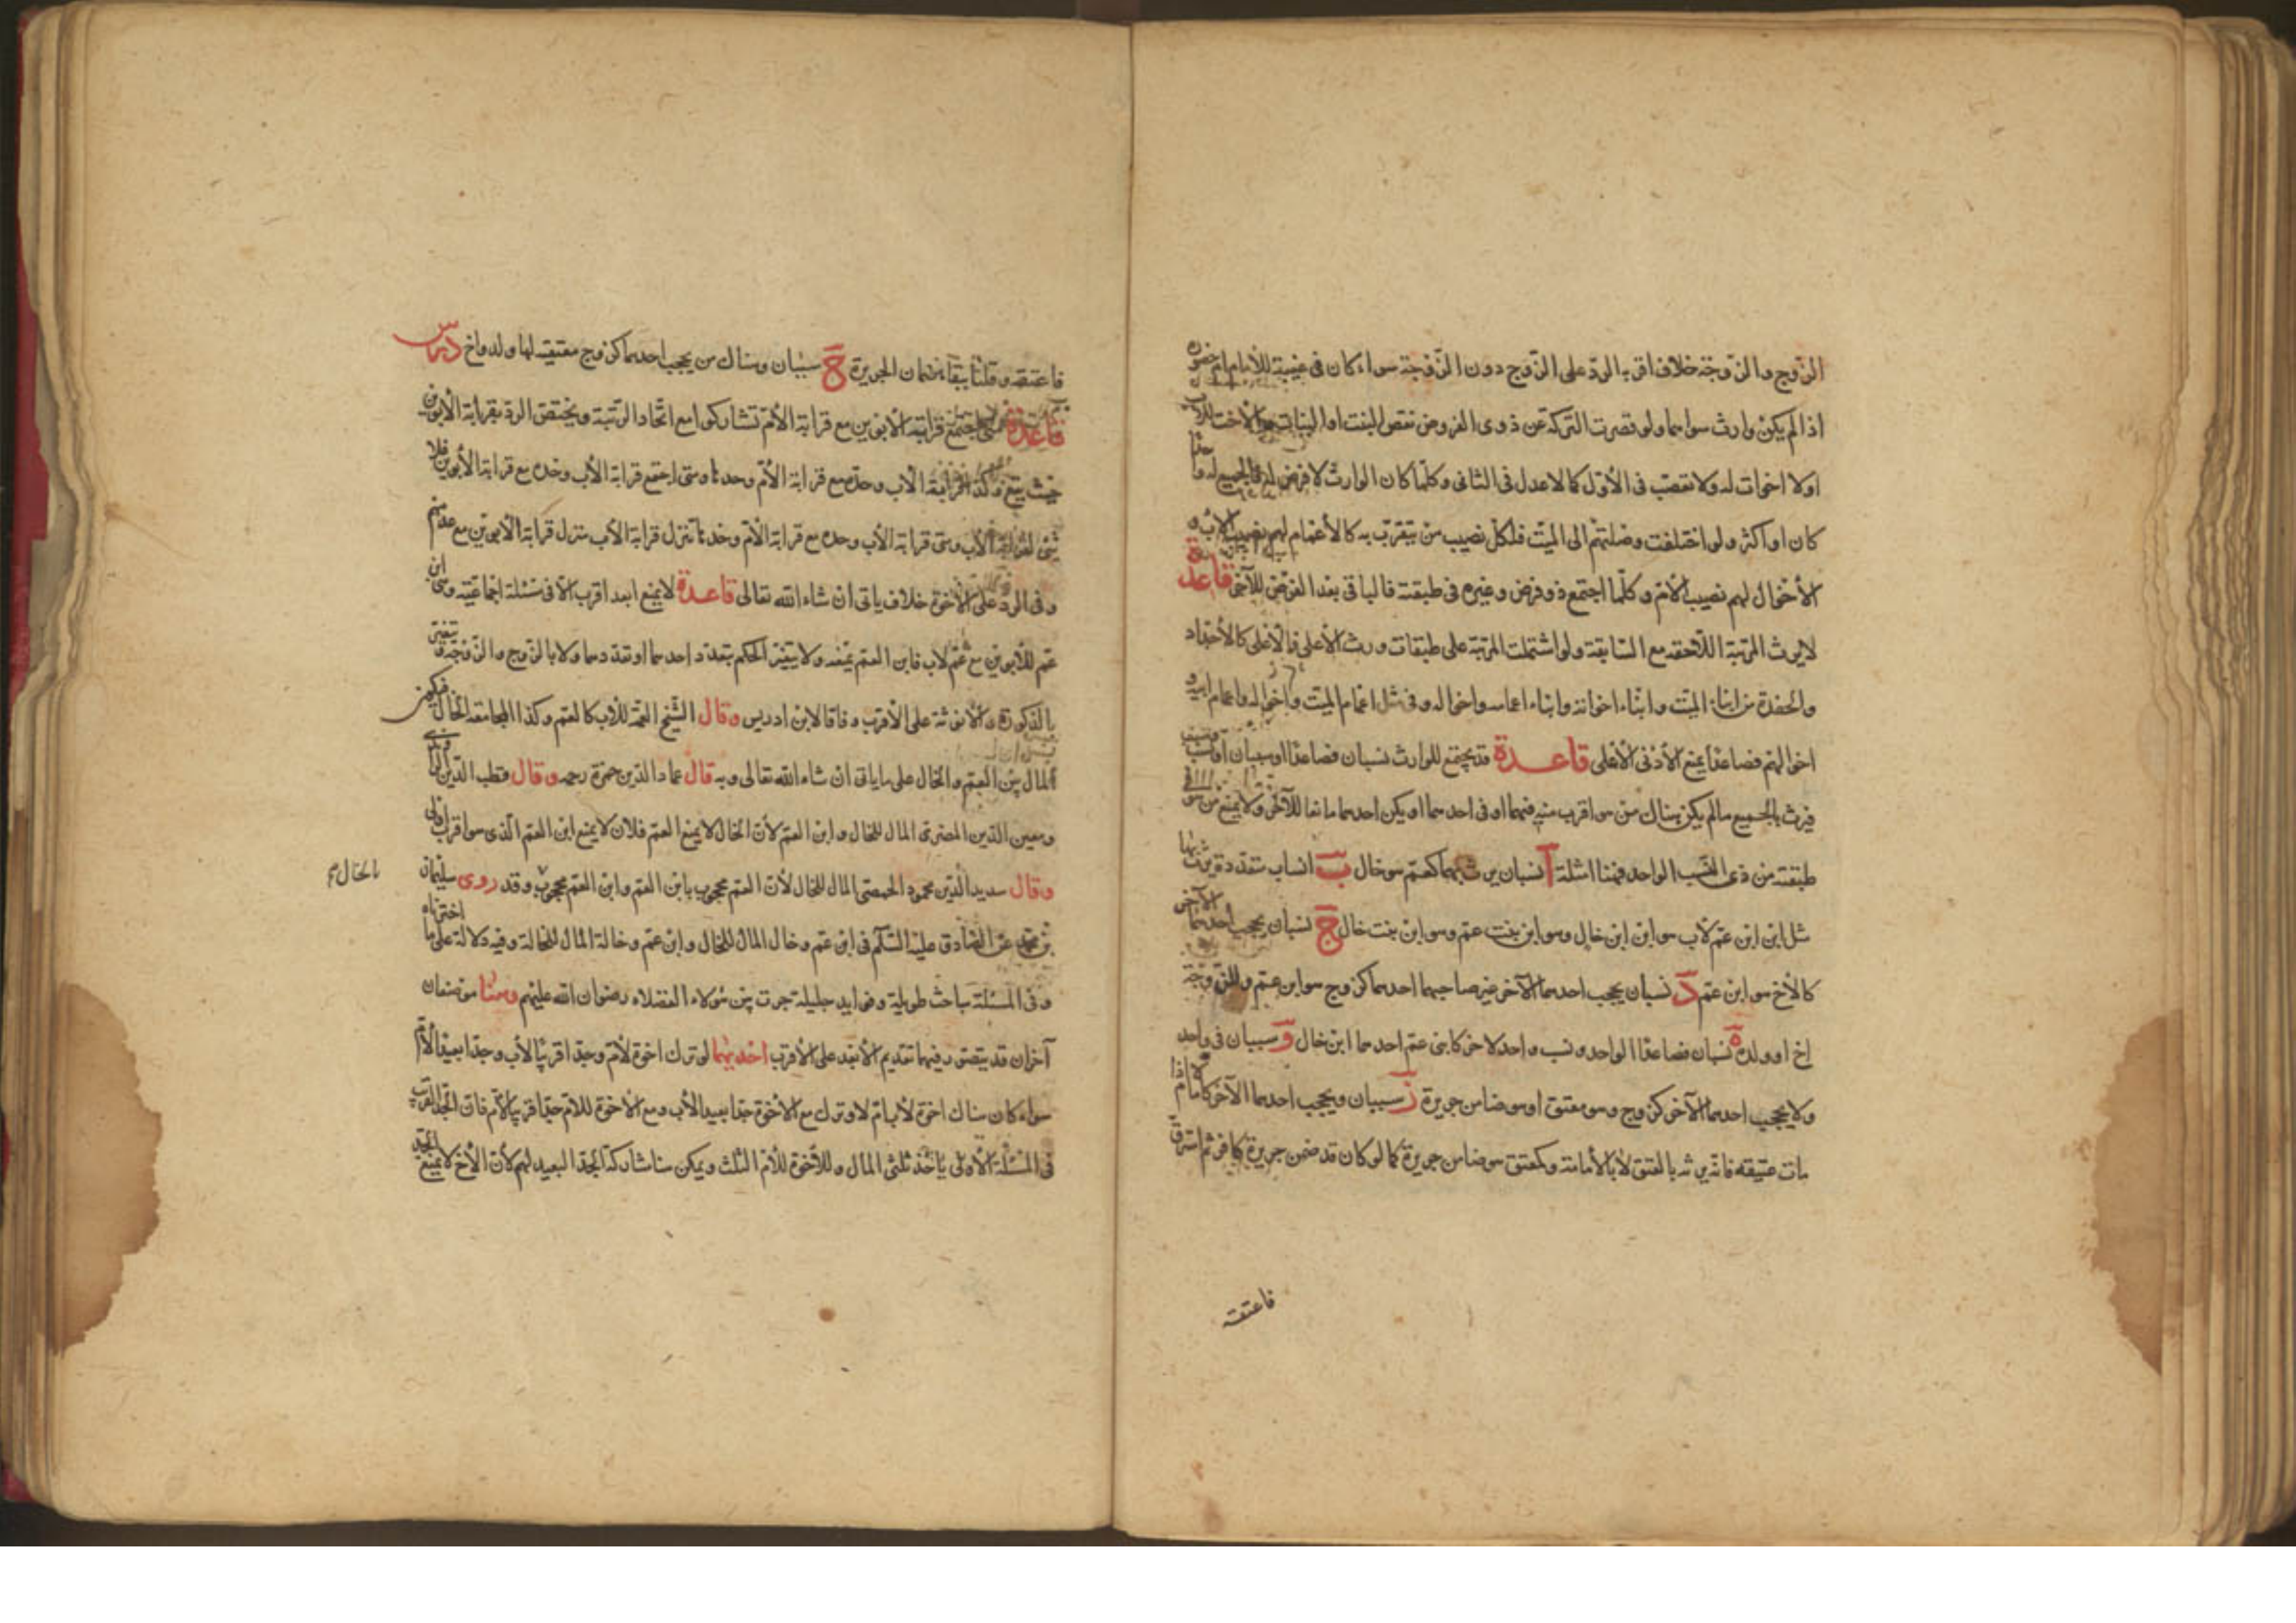 الزوج والزوجة خلاف اقربه الرد على الزوج دون الزوجة سواء كان فى غيبة الامام ام حضوره
اذا لم يكن وارث سواهما ولو قصرت التركة عن ذوى الفروض نقص البنت او البنات والاخت للاب
او الاخوات له ولا تعصب فى الأول كما لا عدل فى الثانى وكلما كان الوارث لا فرض له فالجميع له واحدا
كان او اكثر ولو اختلفت وصلتهم الى الميت فلكل نصيب من يتقرب به كالأعمام لهم نصيب الاب و
الأخوال لهم نصيب الام وكلما اجتمع ذو فرض وغيره فى طبقته فالباقى بعد الفرض للآخر قاعدة
لا يرث المرتبة اللاحقة مع السابقة ولو اشتملت المرتبة على طبقات ورث الأعلى فالأعلى كالأحفاد
والحفدة من ابناء الميت وابناء اخواته وابناء اعمامه واخواله وفى مثل اعمام الميت واخواله واعمام ابيه و
اخوالهم فصاعدا يمنع الأدنى الأعلى قاعدة قد يجتمع للوارث نسبان فصاعدا او سببان
فيرث بالجميع ما لم يكن هناك من هو اقرب منه فيهما او فى احدهما او يكن احدهما مانعا للآخر ولا يمنع من هو فى
طبقته من ذى النسب الواحد فهنا امثلة آ نسبان يرث بهما كعم هو خال ب انساب متعددة يرث بها
مثل ابن ابن عم لأب هو ابن ابن خال وهو ابن بنت عم وهو ابن بنت خال ج نسبان يحجب احدهما الآخر
كالأخ هو ابن عم د نسبان يحجب احدهما الآخر غير صاحبهما احدهما كزوج هو ابن عم وللزوجة
اخ او ولد ه نسبان فصاعدا الواحد ونسب واحد لآخر كابنى عم احدهما ابن خال و سببان فى واحد
ولا يحجب احدهما الآخر كزوج وهو معتق او هو ضامن جريرة ز سببان ويحجب احدهما الآخر كالامام اذا
مات عتيقه فانه يرثه بالعتق لا بالأمامة وكمعتق هو ضامن جريرة كما لو كان قد ضمن جريرة كافر ثم استرق
فاعتقه
فاعتقه وقلنا ببقاء ضمان الجريرة ح سببان وهناك من يحجب احدهما كزوج معتقته لها ولد واخ درس
قاعدة متى اجتمع قرابة الأبوين مع قرابة الأم تشاركوا مع اتحاد الرتبة ويختص الرد بقرابة الأبوين
حيث يتفق وكذا قرابة الاب وحده مع قرابة الأم وحدها ومتى اجتمع قرابة الأب وحده مع قرابة الأبوين فلا
شئ لقرابة الأب ومتى قرابة الأب وحده مع قرابة الأم وحدها تنزل قرابة الأب منزل قرابة الأبوين مع عدمهم
وفى الرد على الأخوة خلاف ياتى ان شاء الله تعالى قاعدة لا يمنع ابعد اقرب الا فى مسئلة اجماعية وهى ابن
عم للأبوين مع عم لأب فابن العم يمنعه ولا يتغير الحكم بتعدد احدهما او تعددهما ولا بالزوج والزوجة وتغير
بالذكورة والأنوثة على الأقرب وفاقا لابن ادريس وقال الشيخ العمة للاب كالعم وكذا المجامعة الخال فيكون
المال بين العم والخال على ما ياتى ان شاء الله تعالى وبه قال عماد الدين حمزة رحمه وقال قطب الدين الراوندى
ومعين الدين المصرى المال للخال وابن العم لأن الخال لا يمنع العم فلان لا يمنع ابن العم الذى هو اقرب اولى
وقال سديد الدين محمود الحمصى المال للخال لأن العم محجوب بابن العم وابن العم محجوب وقد روى سليمان
بالخال
بن محمد عن الصادق عليه السلام فى ابن عم وخال المال للخال وابن عم وخالة المال للخالة وفيه دلالة على ما اخترناه
وفى المسئلة مباحث طويلة وفوايد جليلة جرت بين هؤلاء الفضلاء رضوان الله عليهم وهنا موضعان
آخران قد يتصور فيهما تقديم الأبعد على الأقرب احديهما لو ترك اخوة لأم وجدا قريبا لأب وجدا بعيدا لأم
سواء كان هناك اخوة لأب ام لا وترك مع الأخوة جدا بعيدا لأب ومع الاخوة للأم جدا قريبا لأم فان الجد القريب
فى المسئلة الأولى ياخذ ثلثى المال وللأخوة للأم الثلث ويمكن هنا مشاركة الجد البعيد لهم لأن الأخ لا يمنع الجد